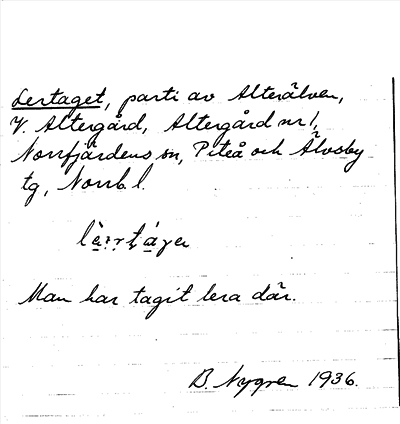 Lertaget, parti av Alterälven,
V. Altergård, Altergård nr 1,
Norrfjärdens sn, Piteå och Älvsby
tg, Norrb. l.
Man har tagit lera där.
B. Nygren 1936.